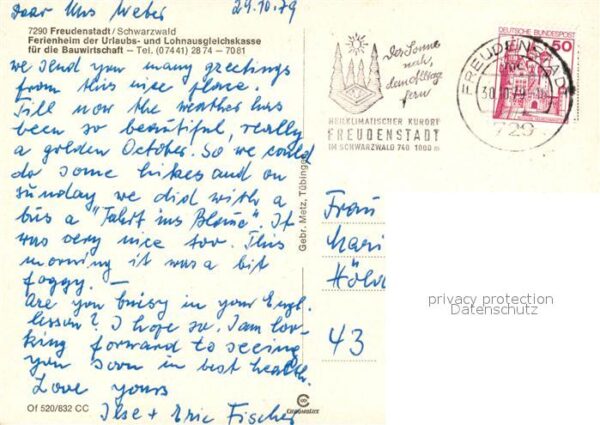 Dear Mrs Weber 29.10.79
7290 Freudenstadt / Schwarzwald
Ferienheim der Urlaubs- und Lohnausgleichskasse
für die Bauwirtschaft – Tel. (07441) 2874 – 7081
we send you many greetings
from this nice place.
Till now the weather has
been so beautiful, really
a golden October. So we could
do some hikes and on
Sunday we did with a
bus a "Fahrt ins Blaue". It
was very nice too. This
morning it was a bit
foggy. —
Are you buisy in your Engl.
lesson? I hope so. I am loo-
king forward to seeing
you soon in best health.
Love yours
Ilse + Eric Fischer
Of 520/832 CC
Gebr. Metz, Tübingen
Der Sonne
nah,
dem Alltag
fern
HEILKLIMATISCHER KURORT
FREUDENSTADT
IM SCHWARZWALD 740 - 1000 m
FREUDENSTADT
30.10.79
729
DEUTSCHE BUNDESPOST
50
Frau
Mari
Höld
43
privacy protection
Datenschutz